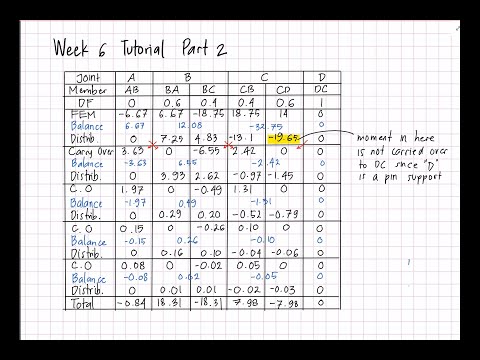 Week 6 Tutorial Part 2
Joint A B C D
Member AB BA BC CB CD DC
DF 0 0.6 0.4 0.4 0.6 1
FEM -6.67 6.67 -18.75 18.75 14 0
Balance 6.67 12.08 -32.75 0
Distrib. 0 7.25 4.83 -13.1 -19.65 0
Carry Over 3.63 0 -6.55 2.42 0 0
Balance -3.63 6.55 -2.42 0
Distrib. 0 3.93 2.62 -0.97 -1.45 0
C.O 1.97 0 -0.49 1.31 0 0
Balance -1.97 0.49 -1.31 0
Distrib. 0 0.29 0.20 -0.52 -0.79 0
C.O 0.15 0 -0.26 0.10 0 0
Balance -0.15 0.26 -0.10 0
Distrib. 0 0.16 0.10 -0.04 -0.06 0
C.O 0.08 0 -0.02 0.05 0 0
Balance -0.08 0.02 -0.05 0
Distrib. 0 0.01 0.01 -0.02 -0.03 0
Total -0.84 18.31 -18.31 7.98 -7.98 0
moment in here
is not carried over
to DC since "D"
is a pin support